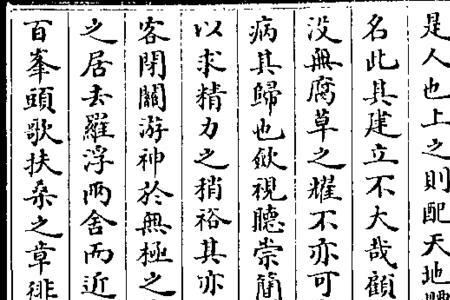 是人也上之則配天地
名此其建立不大哉顧
没無腐草之耀不亦可
病其歸也歛視聽崇簡
以求精力之稍裕其亦
客閉關游神於無極之
之居去羅浮兩舍而近
百峯頭歌扶桑之章徘